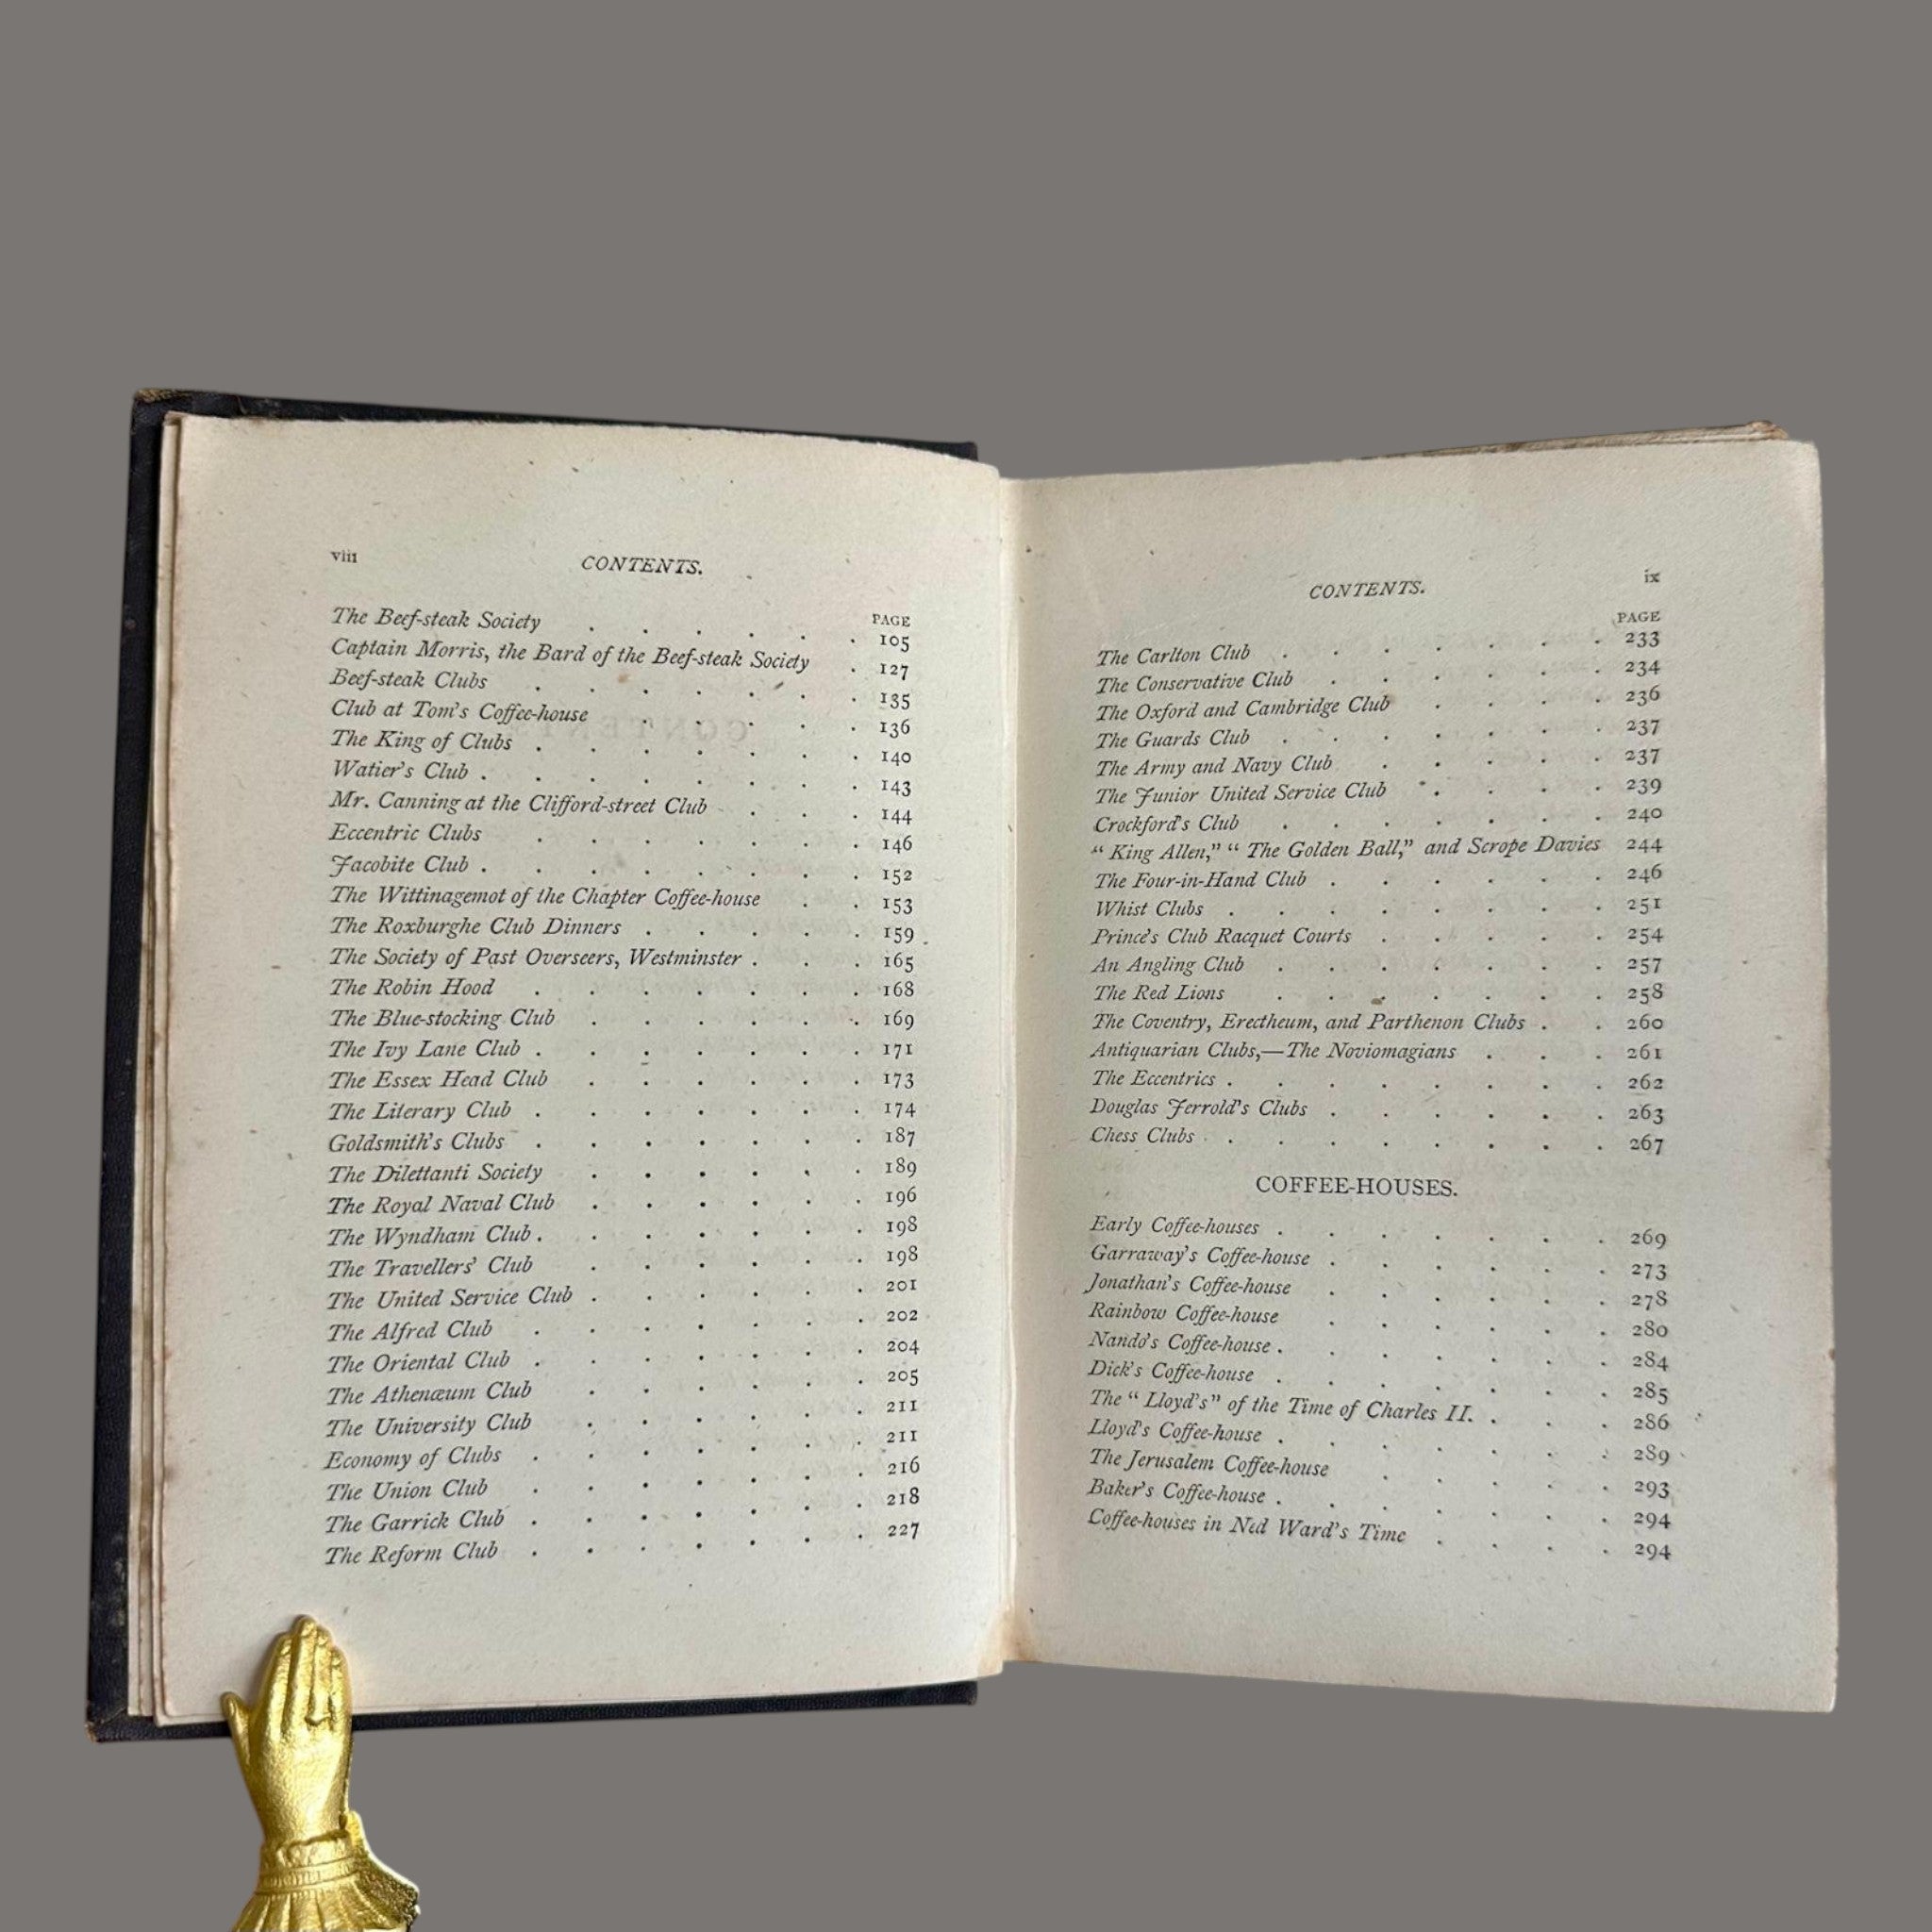 viii CONTENTS.
PAGE
The Beef-steak Society . . . . . . 105
Captain Morris, the Bard of the Beef-steak Society . 127
Beef-steak Clubs . . . . . . . 135
Club at Tom's Coffee-house . . . . . 136
The King of Clubs . . . . . . . 140
Watier's Club . . . . . . . . 143
Mr. Canning at the Clifford-street Club . . . 144
Eccentric Clubs . . . . . . . 146
Jacobite Club . . . . . . . . 152
The Wittinagemot of the Chapter Coffee-house . . 153
The Roxburghe Club Dinners . . . . . 159
The Society of Past Overseers, Westminster . . . 165
The Robin Hood . . . . . . . 168
The Blue-stocking Club . . . . . . 169
The Ivy Lane Club . . . . . . . 171
The Essex Head Club . . . . . . 173
The Literary Club . . . . . . . 174
Goldsmith's Clubs . . . . . . . 187
The Dilettanti Society . . . . . . 189
The Royal Naval Club . . . . . . 196
The Wyndham Club . . . . . . . 198
The Travellers' Club . . . . . . 198
The United Service Club . . . . . . 201
The Alfred Club . . . . . . . 202
The Oriental Club . . . . . . . 204
The Athenæum Club . . . . . . 205
The University Club . . . . . . 211
Economy of Clubs . . . . . . . 211
The Union Club . . . . . . . 216
The Garrick Club . . . . . . . 218
The Reform Club . . . . . . . 227
CONTENTS. ix
PAGE
The Carlton Club . . . . . . . 233
The Conservative Club . . . . . . 234
The Oxford and Cambridge Club . . . . 236
The Guards Club . . . . . . . 237
The Army and Navy Club . . . . . 237
The Junior United Service Club . . . . 239
Crockford's Club . . . . . . . 240
“ King Allen,” “ The Golden Ball,” and Scrope Davies 244
The Four-in-Hand Club . . . . . . 246
Whist Clubs . . . . . . . . 251
Prince's Club Racquet Courts . . . . . 254
An Angling Club . . . . . . . 257
The Red Lions . . . . . . . 258
The Coventry, Erectheum, and Parthenon Clubs . . 260
Antiquarian Clubs,—The Noviomagians . . . 261
The Eccentrics . . . . . . . . 262
Douglas Jerrold's Clubs . . . . . . 263
Chess Clubs . . . . . . . . 267
COFFEE-HOUSES.
Early Coffee-houses . . . . . . . 269
Garraway's Coffee-house . . . . . . 273
Jonathan's Coffee-house . . . . . . 278
Rainbow Coffee-house . . . . . . 280
Nando's Coffee-house . . . . . . . 284
Dick's Coffee-house . . . . . . . 285
The “ Lloyd's” of the Time of Charles II. . . . 286
Lloyd's Coffee-house . . . . . . . 289
The Jerusalem Coffee-house . . . . . 293
Baker's Coffee-house . . . . . . . 294
Coffee-houses in Ned Ward's Time . . . . 294